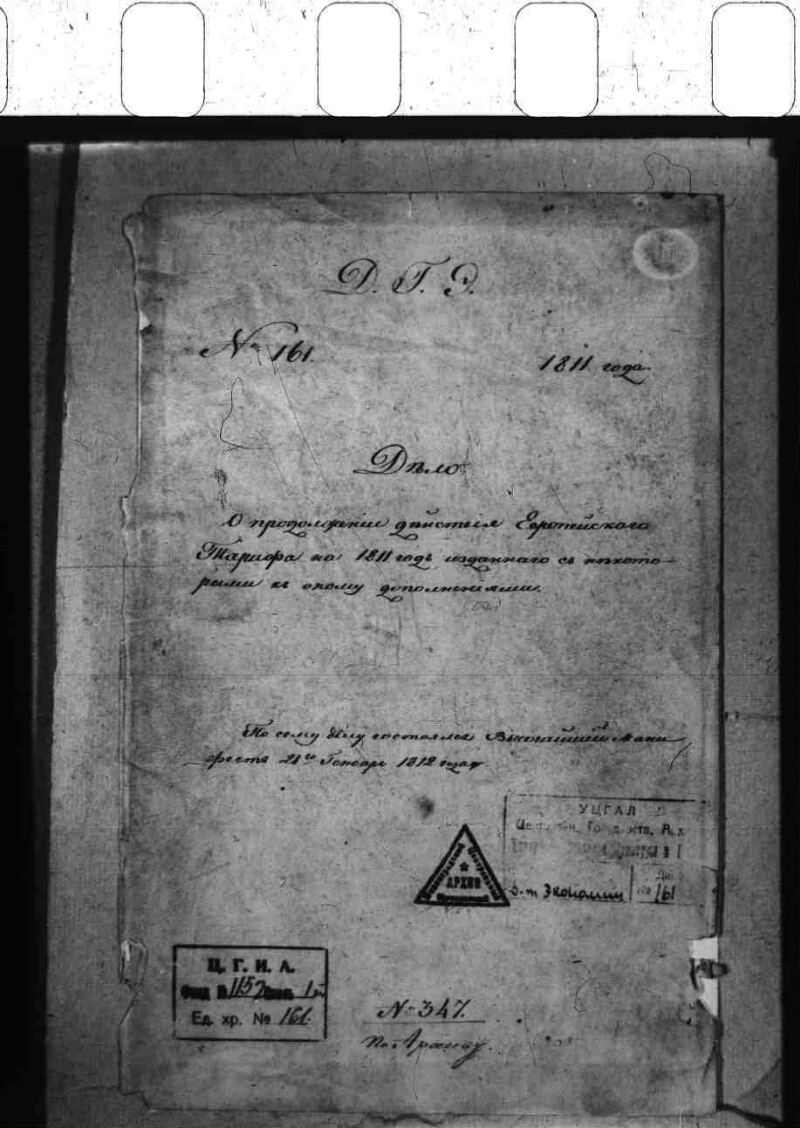 Д. Г. Э.
№ 161.
1811 года.
Дѣло
О продолженіи дѣйствія Европейскаго
Тарифа на 1811 годъ изданнаго съ нѣкото-
рыми къ оному дополненіями.
По сему дѣлу состоялся Высочайшій Мани
фестъ 21го Генваря 1812 года
УЦГАЛ
АРХИВ
Д-т Экономии
№ 161
Ц. Г. И. А.
Фонд № 1152 1
Ед. хр. № 161.
№ 347.
По Архиву.